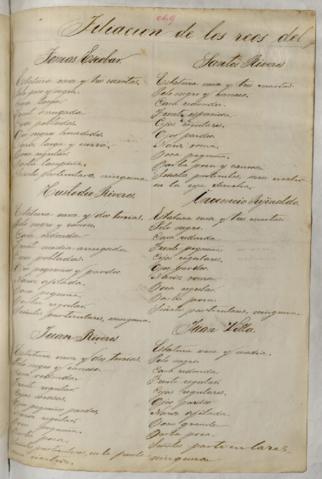 Filiacion de los reos del
Tomas Escobar
Estatura vara y tres cuartas
Pelo negro
Cara larga
Frente arrugada
Cejas pobladas
Ojos negros
Nariz larga y
Boca regular
Barba lampiña
Señales particulares ninguna
Custodio Riveros
Estatura vara y dos tercias
Pelo negro y canoso
Cara redonda
Frente media arrugada
Cejas pobladas
Ojos pequeños y pardos
Nariz afilada
Boca pequeña
Barba regular
Señales particulares, ninguna
Juan Riveros
Estatura vara y dos tercias
Pelo negro y canoso
Cara redonda
Frente regular
Cejas
Ojos pequeños pardos
Nariz regular
Boca pequeña
Barba poca
particulares, en la frente
Santos Riveros
Estatura vara y tres cuartas
Pelo negro y canoso
Cara redonda
Frente espaciosa
Cejas regulares
Ojos pardos
Nariz roma
Boca pequeña
Barba poca y canosa
Señales particulares, una
en la ceja derecha
Estatura vara y tres cuartas
Pelo negro
Cara redonda
Frente pequeña
Cejas regulares
Ojos pardos
Nariz roma
Boca regular
Barba poca
Señales particulares, ninguna
Juan Villa
Estatura vara y media
Pelo negro
Cara redonda
Frente regular
Cejas regulares
Ojos pardos
Nariz afilada
Boca grande
Barba poca
Señales particulares
ninguna